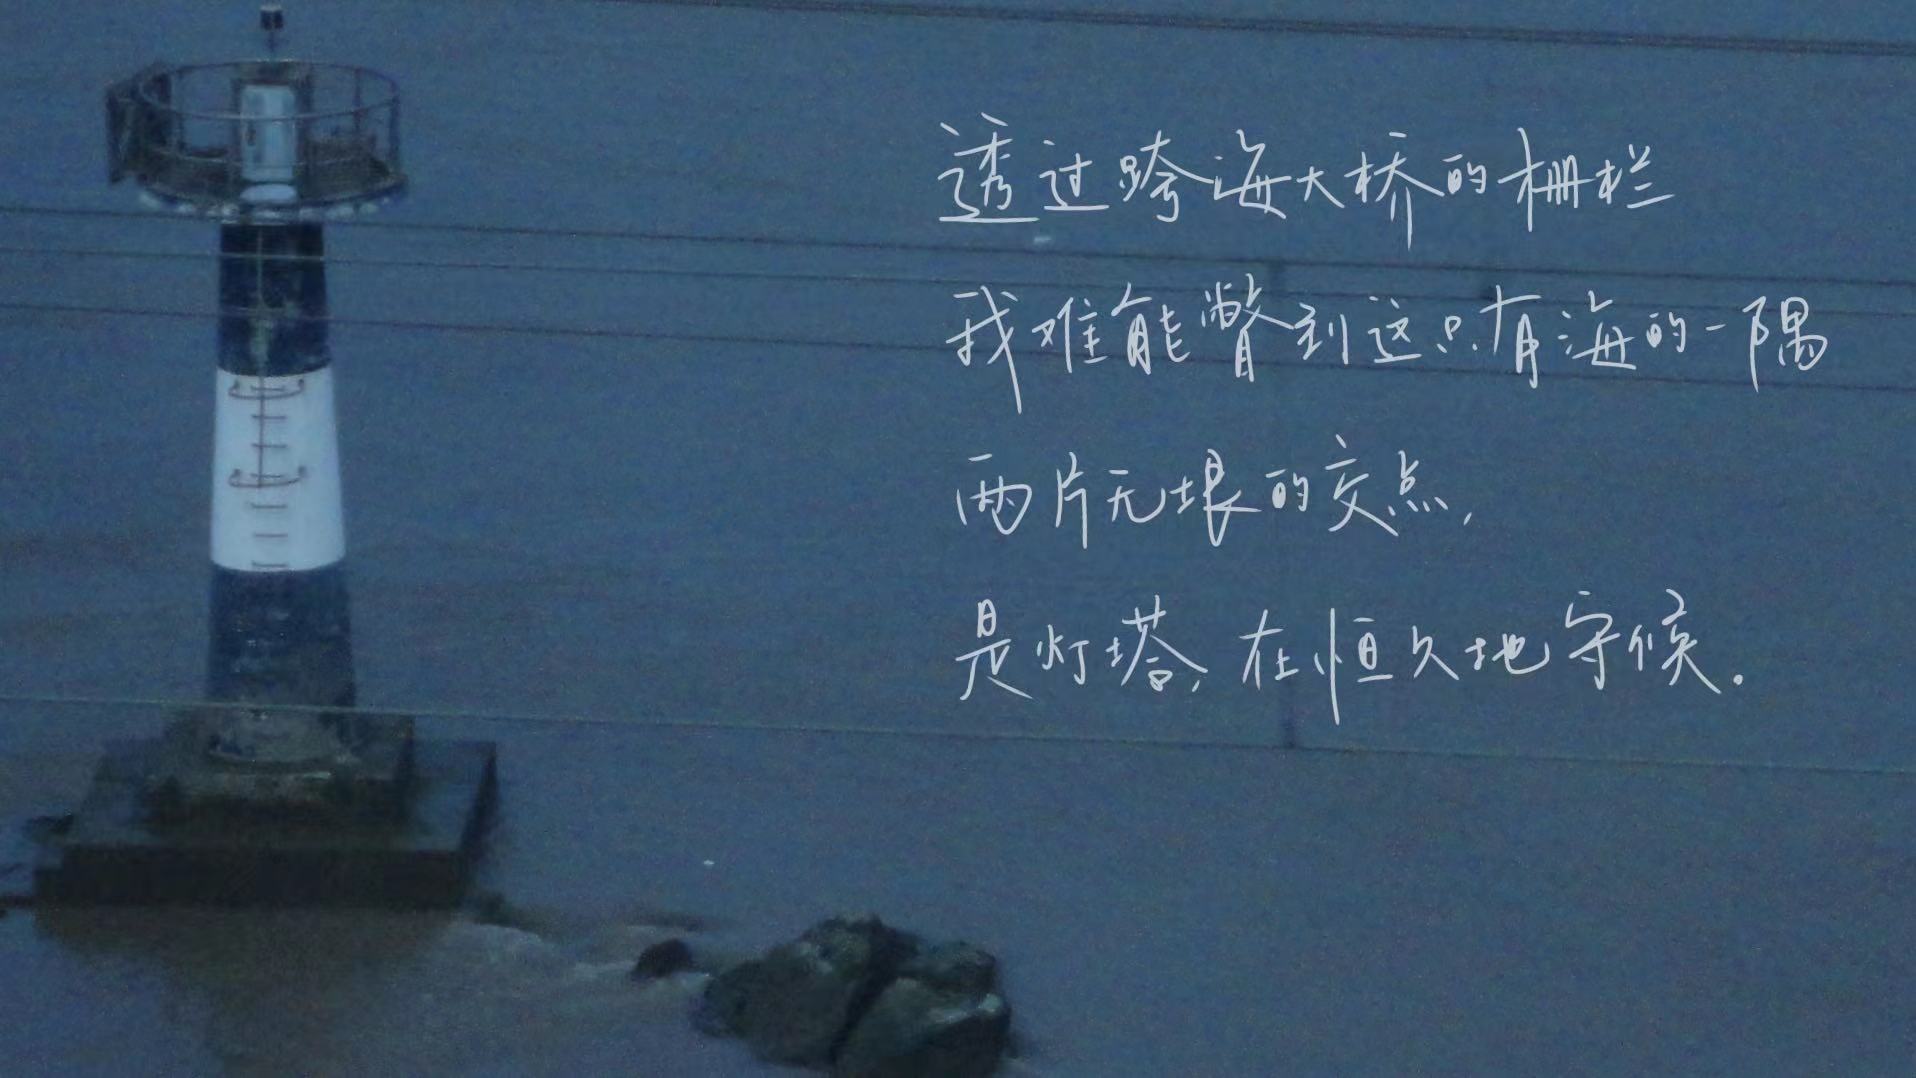 透过跨海大桥的栅栏
我难能瞥到这只有海的一隅
两片无垠的交点，
是灯塔，在恒久地守候。